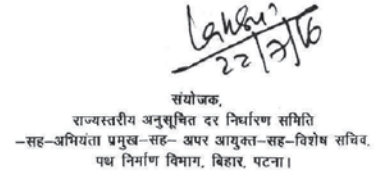 22/7/16
संयोजक,
राज्यस्तरीय अनुसूचित दर निर्धारण समिति
-सह-अभियंता प्रमुख-सह- अपर आयुक्त-सह-विशेष सचिव,
पथ निर्माण विभाग, बिहार, पटना।